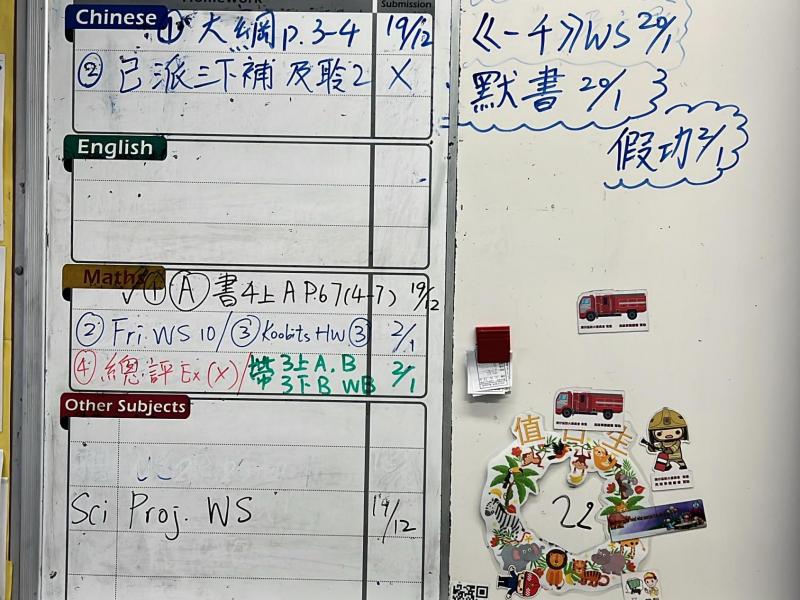 Homework
Submission
Chinese
① 大綱 p.3-4 19/12
② 已派三下補 及聆2 X
English
Maths
✓① Ⓐ 書4上A P.67(4-7) 19/12
② Fri. WS 10/③ Koobits HW③ 2/1
④ 總評 Ex (X)/帶 3上A.B
3下B WB 2/1
Other Subjects
Sci Proj. WS 19/12
《一千》WS 20/1
默書 20/1
假功 2/1
值日生
22